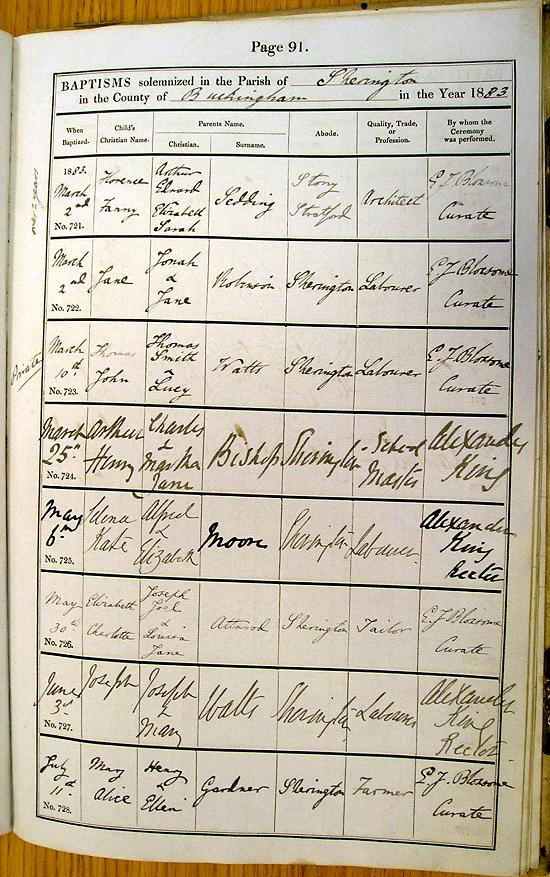 Page 91.
BAPTISMS solemnized in the Parish of Sherington
in the County of Buckingham in the Year 1883
When Baptized. Child's Christian Name. Parents Name. Christian. Surname. Abode. Quality, Trade, or Profession. By whom the Ceremony was performed.
1883. March 2nd No. 721. Florence Fanny Arthur Edward Elizabeth Sarah Sedding Stony Stratford Architect E J Blosome Curate
March 2nd No. 722. Jane Jonah & Jane Robinson Sherington Labourer E J Blosome Curate
Private
March 10th No. 723. Thomas John Thomas Smith & Lucy Watts Sherington Labourer E J Blosome Curate
March 25th No. 724. Arthur Henry Charles & Martha Jane Bishop Sherington School Master Alexander King
May 6th No. 725. Kate Alfred & Elizabeth Moore Sherington Labourer Alexander King Rector
May 30th No. 726. Elizabeth Charlotte Joseph Joel & Louisa Jane Attwood Sherington Tailor E J Blosome Curate
June 3rd No. 727. Joseph Joseph & Mary Watts Sherington Labourer Alexander King Rector
July 11th No. 728. May Alice Henry & Ellen Gardner Sherington Farmer E. J. Blosome Curate